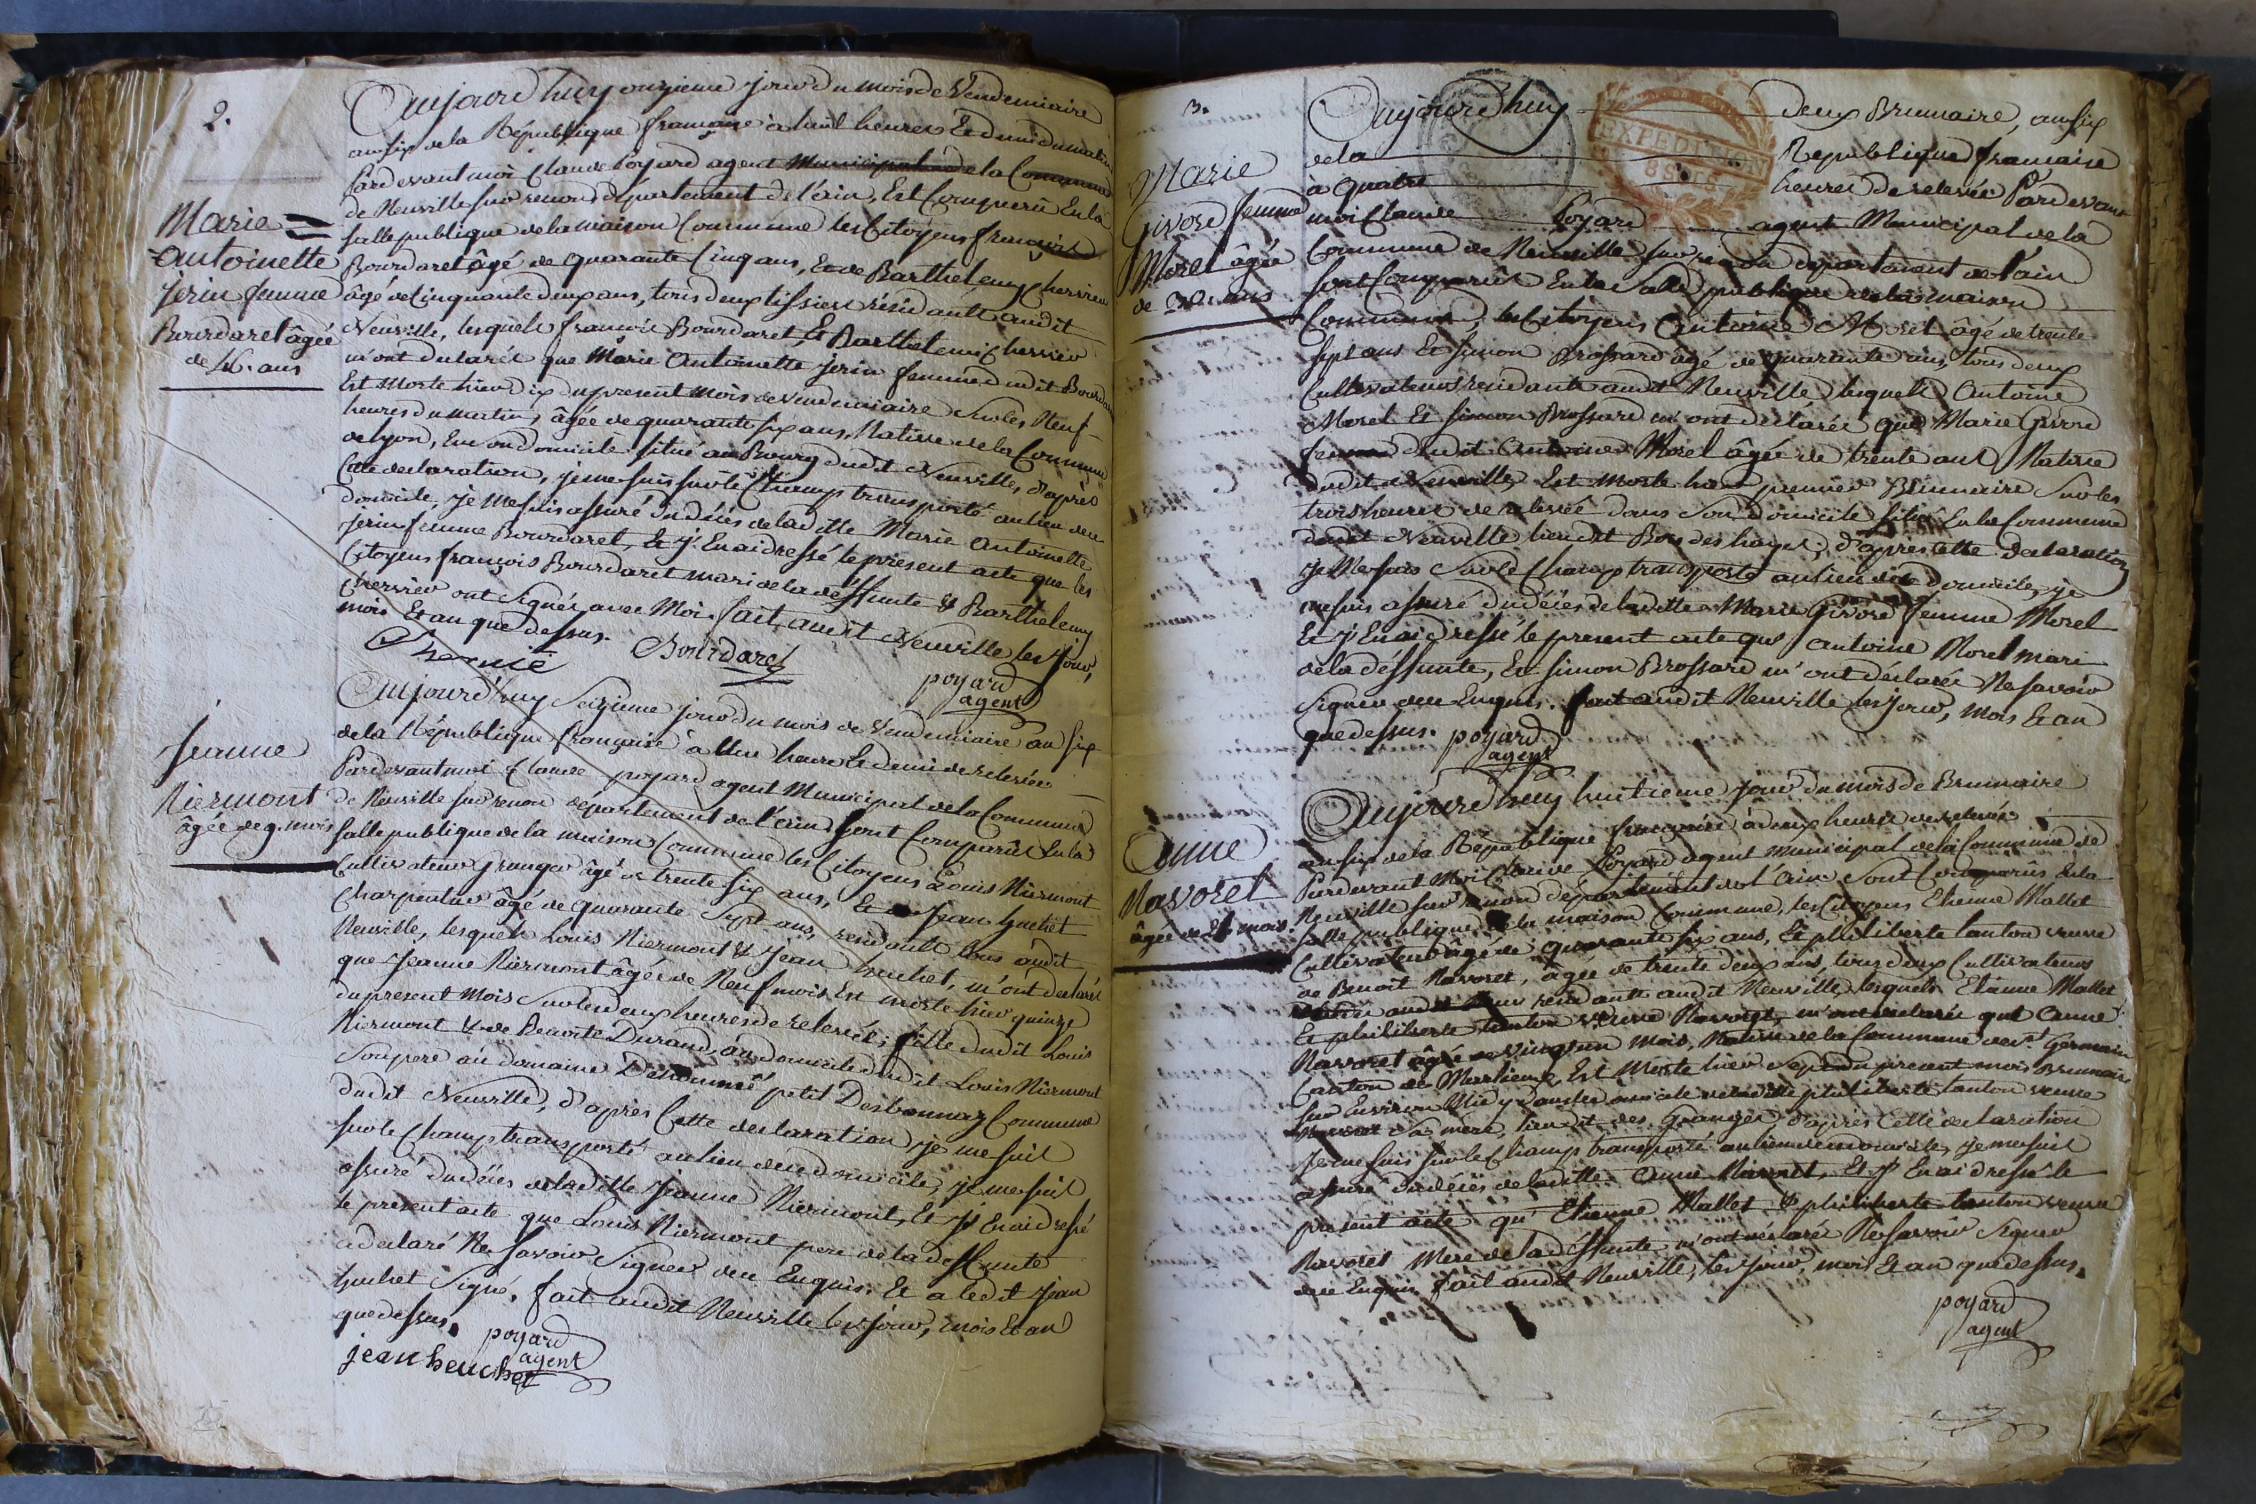 2.
Aujourd'huy onzieme jour du mois de Vendemiaire
an six de la République française à huit heures Et demi du matin
Pardevant moi Claude Poyard agent Municipal de la Commune
de Neuville sur renon département de l'ain, Est Comparu En la
salle publique de la maison Commune les Citoyens françois
Marie =
Antoinette
jerin femme
Bourdaret âgée
de 46. ans
Bourdaret âgé de quarante Cinq ans, Et de Barthelemy Cherrier
âgé de Cinquante deux ans, tous deux tissiers résidants audit
Neuville, lesquels françois Bourdaret Et Barthelemi Cherrier
m'ont declarés que Marie Antoinette jerin femme dudit Bourdaret
Est Morte hier dix du present mois de vendemiaire sur les Neuf
heures du matin, âgée de quarante six ans, Native de la Commune
de lyon, En son domicile situé au Bourg dudit Neuville, d'après
Cette declaration, je me suis sur le Champ transporté au lieu du
domicile, je me suis assuré du décés de laditte Marie Antoinette
jerin femme Bourdaret, Et j'En ai dressé le présent acte que les
Citoyens françois Bourdaret mari de la déffunte & Barthelemy
Cherrier ont signés avec Moi. fait audit Neuville les jour,
mois Et an que dessus.
Bourdaret
poyard
agent
Aujourd'huy Seizieme jour du mois de Vendemiaire an six
de la République française à Une heure Et demi de relevée
Pardevant moi Claude poyard agent Municipal de la Commune
de Neuville sur renon département de l'ain, Sont Comparûs En la
salle publique de la maison Commune les Citoyens Louis Niermont
Jeanne
Niermont
âgée de 9. mois
Cultivateur granger âgé de trente six ans, Et Jean huchet
Charpentier âgé de quarante Sept ans, residants tous audit
Neuville, lesquels Louis Niermont & Jean huchet, m'ont declarés
que Jeanne Niermont âgée de Neuf mois Est morte hier quinze
du present Mois sur les deux heures de relevée; fille dudit Louis
Niermont & de Benoite Durand, au domicile dudit Louis Niermont
Son pere au domaine Denommé petit Desbonnaz Commune
dudit Neuville, d'après Cette declaration, je me suis
sur le Champ transporté au lieu du domicile, je me suis
assuré du décés de laditte Jeanne Niermont, Et j'En ai dressé
le present acte que Louis Niermont pere de la deffunte
a declaré Ne savoir Signer de ce Enquis. Et a ledit Jean
huchet Signé, fait audit Neuville les jour, mois Et an
que dessus.
poyard
agent
jean heuchet
3.
Aujourd'huy deux Brumaire, an six
de la République française
à Quatre heures de relevée Pardevant
moi Claude Poyard agent Municipal de la
Commune de Neuville sur renon département de l'ain
EXPEDITION
8 SOLS
Marie
Givord femme
Morel âgée
de 30. ans
Sont Comparûs En la Salle publique de la maison
Commune, les Citoyens Antoine Morel âgé de trente
sept ans Et Simon Brossard âgé de quarante ans, tous deux
Cultivateurs residants audit Neuville, lesquels Antoine
Morel Et Simon Brossard m'ont declarés que Marie Givord
femme dudit Antoine Morel âgée de trente ans Native
dudit Neuville, Est Morte hier premier Brumaire sur les
trois heures de relevée dans son domicile situé En la Commune
dudit Neuville lieu dit Bois des hayes, d'apres cette declaration
je Me suis Sur le Champ transporté au lieu du domicile, je
me suis assuré du décés de laditte Marie Givord femme Morel
Et j'En ai dressé le present acte que Antoine Morel mari
de la déffunte, Et Simon Brossard m'ont déclarés Ne Savoir
Signer de ce Enquis. fait audit Neuville les jour, mois Et an
que dessus.
poyard
agent
Aujourd'huy huitieme jour du mois de Brumaire
an six de la République française à deux heures de relevée
Pardevant Moi Claude Poyard agent municipal de la Commune de
Neuville sur renon département de l'ain Sont Comparûs En la
salle publique de la maison Commune, les Citoyens Etienne Mallet
Anne
Navoret
âgée de 21. mois.
Cultivateur âgé de quarante six ans, Et philiberte tanton veuve
de Benoit Navoret, âgée de trente deux ans, tous deux Cultivateurs
residants audit Neuville, lesquels Etienne Mallet
Et philiberte tanton veuve Navoret, m'ont declarés que Anne
Navoret âgée de vingt un mois, Native de la Commune de St. Germain
Canton de Marlieux, Est Morte hier Sept du present mois Brumaire
sur Environ Midy dans le domicile de laditte philiberte tanton veuve
Navoret Sa mere, lieu dit des Granges, d'après Cette declaration
Je me suis sur le Champ transporté au lieu du domicile, je me suis
assuré du décés de laditte Anne Navoret, Et j'En ai dressé le
present acte qu'Etienne Mallet & philiberte tanton veuve
Navoret Mere de la déffunte m'ont déclarés Ne Savoir Signer
de ce Enquis. fait audit Neuville, les jour, mois Et an que dessus.
poyard
agent